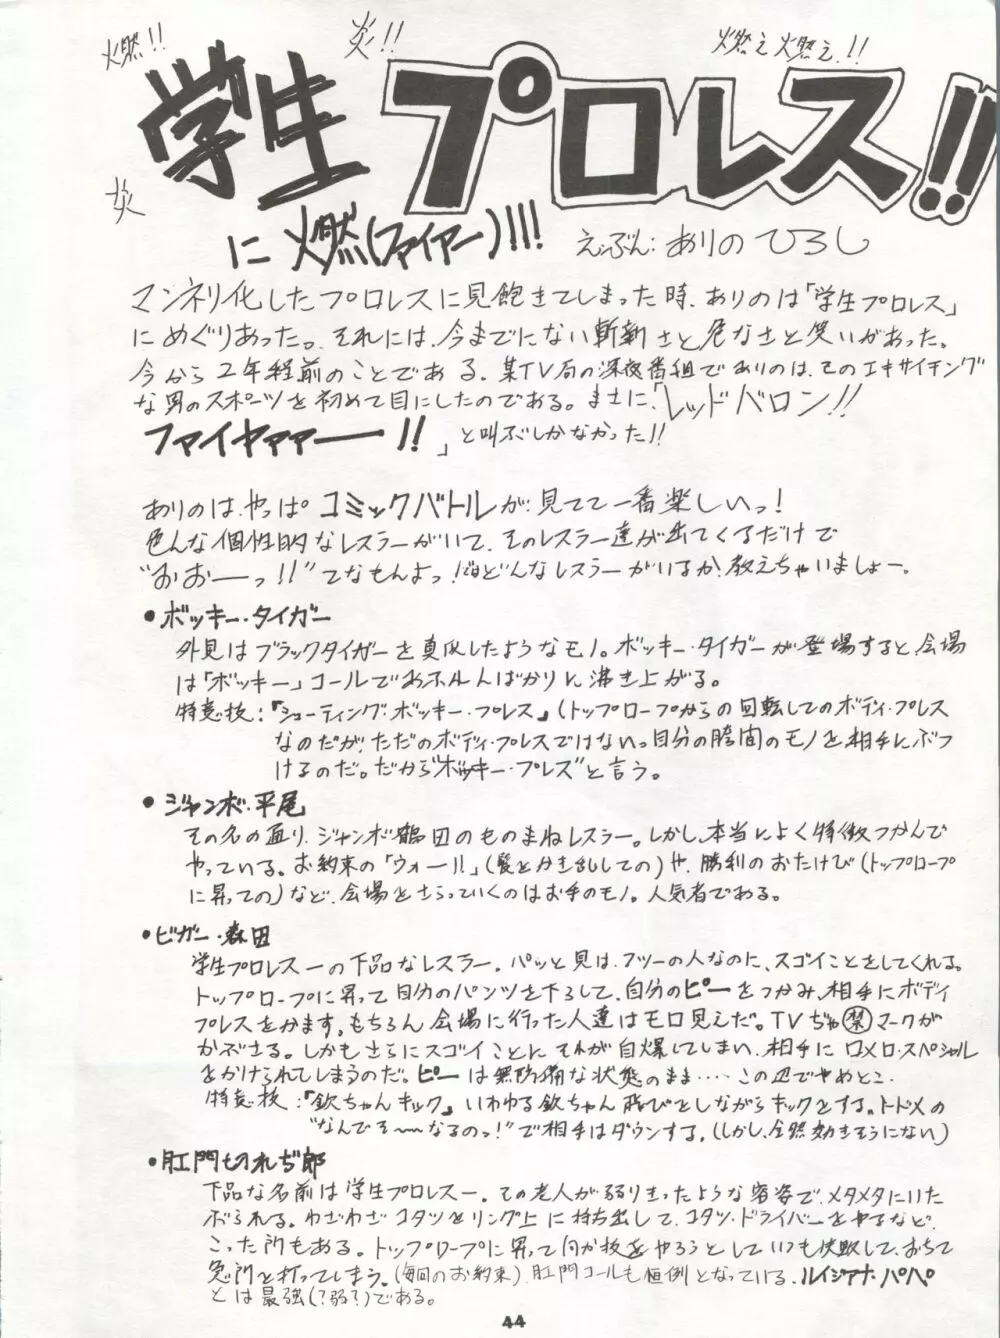 燃!!
炎!!
燃え燃え!!
炎
学生プロレス!!
に燃(ファイヤー)!!!
えぶん:ありのひろし
マンネリ化したプロレスに見飽きてしまった時、ありのは「学生プロレス」
にめぐりあった。それには、今までにない斬新さと危なさと笑いがあった。
今から2年程前のことである。某TV局の深夜番組でありのは、そのエキサイチング
な男のスポーツを初めて目にしたのである。まさに、「レッドバロン!!
ファイヤァァーー!!」と叫ぶしかなかった!!
ありのは、やっぱコミックバトルが、見てて一番楽しいっ!
色んな個性的なレスラーがいて、そのレスラー達が出てくるだけで
"おおーっ!!"てなもんよっ!ほどんなレスラーがいるか、教えちゃいましょー。
•ボッキー・タイガー
外見はブラックタイガーを真似したようなモノ。ボッキー・タイガーが登場すると、会場
は「ボッキー」コールであふれんばかりに沸き上がる。
特意技:「シューティング・ボッキー・プレス」(トップロープからの回転してのボディ・プレス
なのだが、ただのボディ・プレスではないっ自分の股間のモノを相手にぶつ
けるのだ。だから"ボッキー・プレス"と言う。
•ジャンボ・平尾
その名の通り、ジャンボ鶴田のものまねレスラー。しかし、本当によく特徴つかんで
やっている。お約束の「ウォー!!」(髪をかき乱しての)や、勝利のおたけび(トップロープ
に昇っての)など、会場をさらっていくのはお手のモノ。人気者である。
•ビガー・森田
学生プロレス一の下品なレスラー。パッと見は、フツーの人なのに、スゴイことをしてくれる。
トップロープに昇って自分のパンツを下ろして、自分のピーをつかみ、相手にボディ
プレスをかます。もちろん会場に行った人達はモロ見えだ。TVぢゃ㊙マークが
かぶさる。しかもさらにスゴイことにそれが自爆してしまい、相手にロメロ・スペシャル
をかけられてしまうのだ。ピーは無防備な状態のまま‥‥この辺でやめとこ。
特意技:「欽ちゃんキック」いわゆる欽ちゃん飛びをしながらキックをする。トドメの
"なんでそ〜なるのっ!"で相手はダウンする。(しかし、全然効きそうにない)
•肛門切れぢ郎
下品な名前は学生プロレス一。その老人が弱りきったような容姿で、メタメタにいた
ぶられる。わざわざコタツをリング上に持ち出して、コタツ・ドライバーをやるなど、
こった所もある。トップロープに昇って何か技をやろうとしていつも失敗して、おちて
急所を打ってしまう。(毎回のお約束)肛門コールも恒例となっている。ルイジアナ・パペ
とは最強(?弱?)である。
44